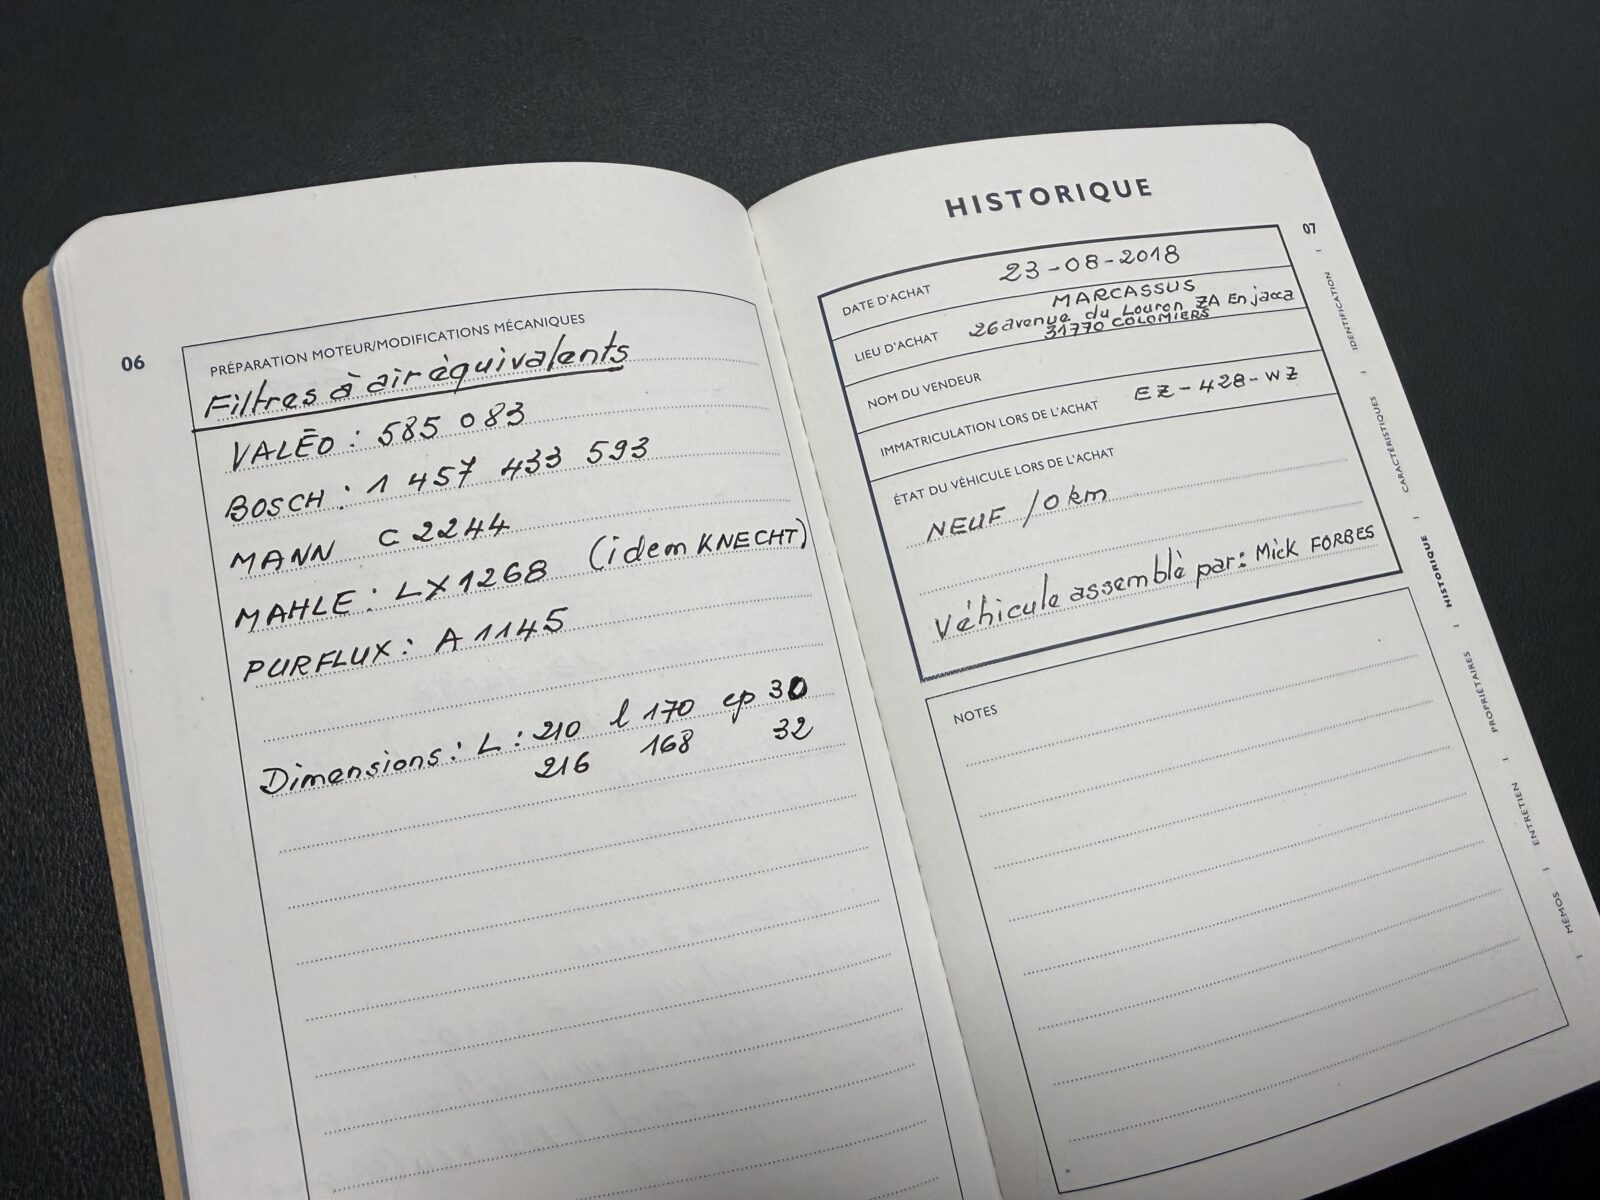 06
PRÉPARATION MOTEUR/MODIFICATIONS MÉCANIQUES
Filtres à air équivalents
VALÉO : 585 083
BOSCH : 1 457 433 593
MANN C 2244
MAHLE : LX1268 (idem KNECHT)
PURFLUX : A 1145
Dimensions : L : 210 l 170 ep 30
216 168 32
HISTORIQUE
07
DATE D'ACHAT 23-08-2018
LIEU D'ACHAT MARCASSUS
26 avenue du Louron ZA En jacca
31770 COLOMIERS
NOM DU VENDEUR
IMMATRICULATION LORS DE L'ACHAT EZ-428-WZ
ÉTAT DU VÉHICULE LORS DE L'ACHAT
NEUF / 0 km
Véhicule assemblè par : Mick FORBES
NOTES
IDENTIFICATION
CARACTÉRISTIQUES
HISTORIQUE
PROPRIÉTAIRES
ENTRETIEN
MÉMOS